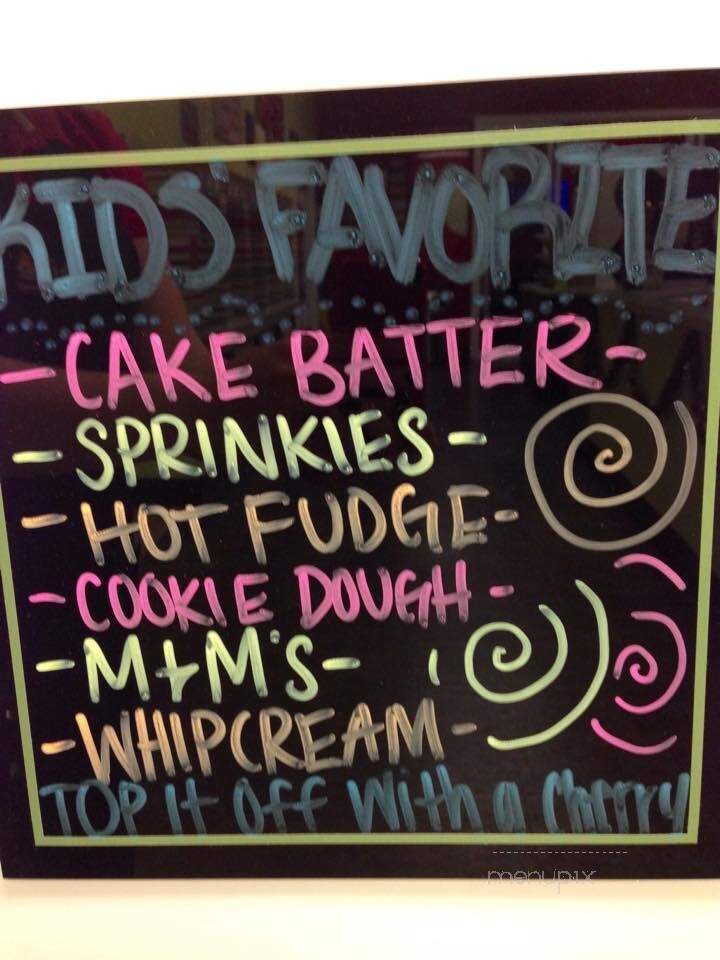 KIDS' FAVORITE
- CAKE BATTER -
- SPRINKlES -
- HOT FUDGE -
- COOKIE DOUGH -
- M+M'S -
- WHIPCREAM -
TOP It Off With a Cherry
menupix